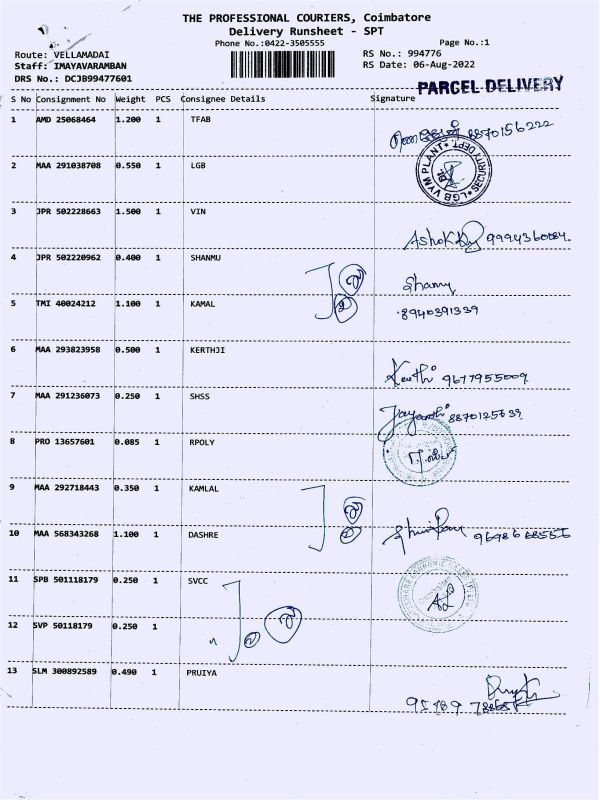 THE PROFESSIONAL COURIERS, Coimbatore
Delivery Runsheet - SPT
Phone No.:0422-3505555
Page No.:1
Route: VELLAMADAI
RS No.: 994776
Staff: IMAYAVARAMBAN
RS Date: 06-Aug-2022
DRS No.: DCJB99477601
PARCEL DELIVERY
S No Consignment No Weight PCS Consignee Details Signature
1 AMD 25068464 1.200 1 TFAB 8870156222
2 MAA 291038708 0.550 1 LGB
LGB VYM PLANT SECURITY DEPT.
3 JPR 502228663 1.500 1 VIN
4 JPR 502220962 0.400 1 SHANMU
5 TMI 40024212 1.100 1 KAMAL 8940391339
6 MAA 293823958 0.500 1 KERTHJI 9677955009
7 MAA 291236073 0.250 1 SHSS 8870125639
8 PRO 13657601 0.085 1 RPOLY
9 MAA 292718443 0.350 1 KAMLAL
10 MAA 568343268 1.100 1 DASHRE
11 SPB 501118179 0.250 1 SVCC
12 SVP 50118179 0.250 1
13 SLM 300892589 0.490 1 PRUIYA